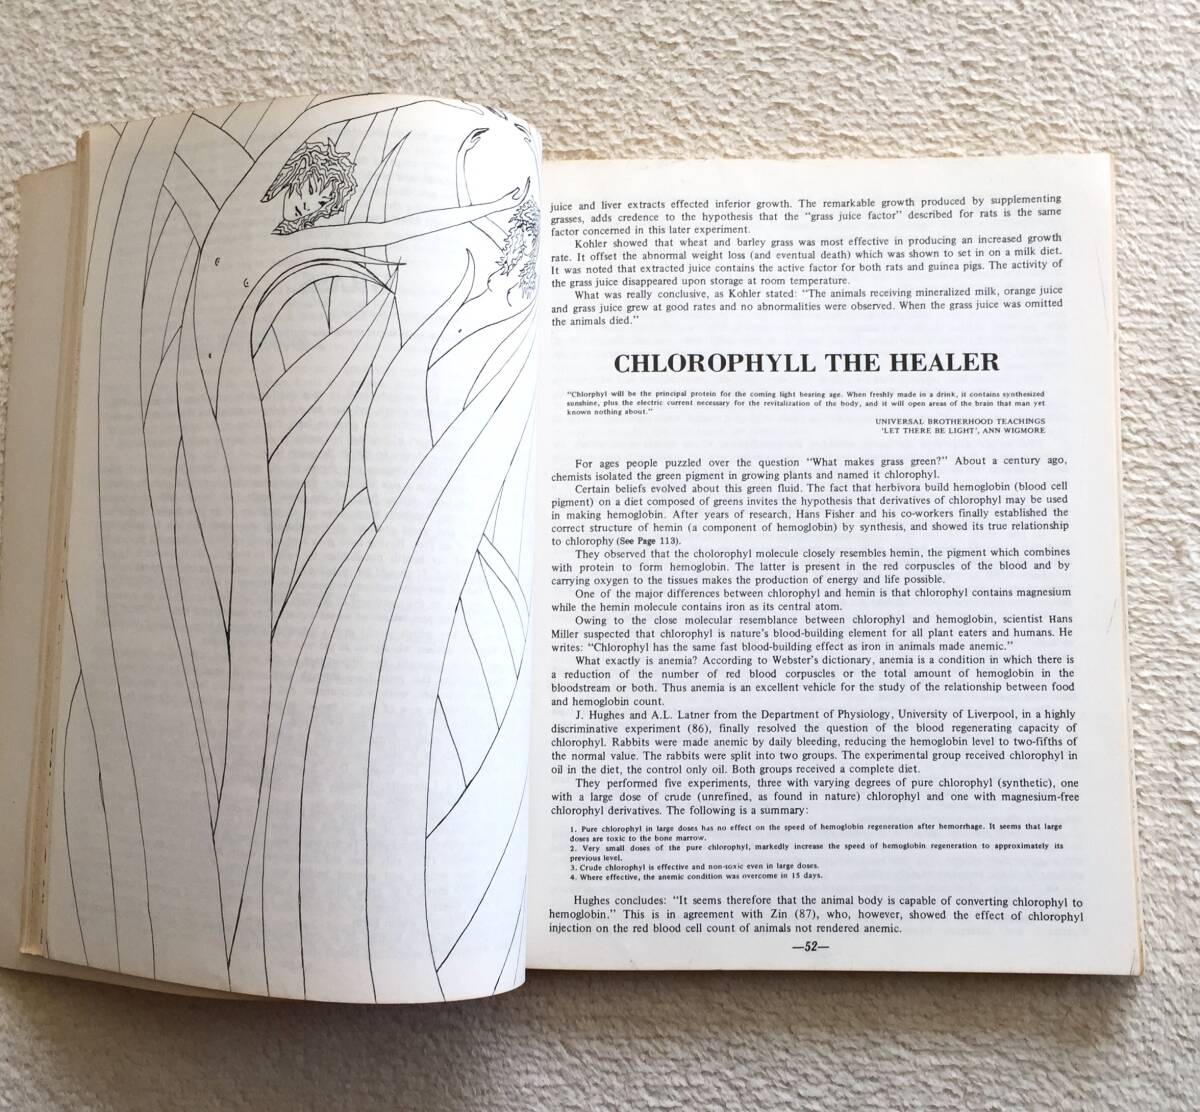 juice and liver extracts effected inferior growth. The remarkable growth produced by supplementing
grasses, adds credence to the hypothesis that the "grass juice factor" described for rats is the same
factor concerned in this later experiment.
Kohler showed that wheat and barley grass was most effective in producing an increased growth
rate. It offset the abnormal weight loss (and eventual death) which was shown to set in on a milk diet.
It was noted that extracted juice contains the active factor for both rats and guinea pigs. The activity of
the grass juice disappeared upon storage at room temperature.
What was really conclusive, as Kohler stated: "The animals receiving mineralized milk, orange juice
and grass juice grew at good rates and no abnormalities were observed. When the grass juice was omitted
the animals died."
CHLOROPHYLL THE HEALER
"Chlorphyl will be the principal protein for the coming light bearing age. When freshly made in a drink, it contains synthesized
sunshine, plus the electric current necessary for the revitalization of the body, and it will open areas of the brain that man yet
known nothing about."
UNIVERSAL BROTHERHOOD TEACHINGS
'LET THERE BE LIGHT', ANN WIGMORE
For ages people puzzled over the question "What makes grass green?" About a century ago,
chemists isolated the green pigment in growing plants and named it chlorophyl.
Certain beliefs evolved about this green fluid. The fact that herbivora build hemoglobin (blood cell
pigment) on a diet composed of greens invites the hypothesis that derivatives of chlorophyl may be used
in making hemoglobin. After years of research, Hans Fisher and his co-workers finally established the
correct structure of hemin (a component of hemoglobin) by synthesis, and showed its true relationship
to chlorophy (See Page 113).
They observed that the cholorophyl molecule closely resembles hemin, the pigment which combines
with protein to form hemoglobin. The latter is present in the red corpuscles of the blood and by
carrying oxygen to the tissues makes the production of energy and life possible.
One of the major differences between chlorophyl and hemin is that chlorophyl contains magnesium
while the hemin molecule contains iron as its central atom.
Owing to the close molecular resemblance between chlorophyl and hemoglobin, scientist Hans
Miller suspected that chlorophyl is nature's blood-building element for all plant eaters and humans. He
writes: "Chlorophyl has the same fast blood-building effect as iron in animals made anemic."
What exactly is anemia? According to Webster's dictionary, anemia is a condition in which there is
a reduction of the number of red blood corpuscles or the total amount of hemoglobin in the
bloodstream or both. Thus anemia is an excellent vehicle for the study of the relationship between food
and hemoglobin count.
J. Hughes and A.L. Latner from the Department of Physiology, University of Liverpool, in a highly
discriminative experiment (86), finally resolved the question of the blood regenerating capacity of
chlorophyl. Rabbits were made anemic by daily bleeding, reducing the hemoglobin level to two-fifths of
the normal value. The rabbits were split into two groups. The experimental group received chlorophyl in
oil in the diet, the control only oil. Both groups received a complete diet.
They performed five experiments, three with varying degrees of pure chlorophyl (synthetic), one
with a large dose of crude (unrefined, as found in nature) chlorophyl and one with magnesium-free
chlorophyl derivatives. The following is a summary:
1. Pure chlorophyl in large doses has no effect on the speed of hemoglobin regeneration after hemorrhage. It seems that large
doses are toxic to the bone marrow.
2. Very small doses of the pure chlorophyl, markedly increase the speed of hemoglobin regeneration to approximately its
previous level.
3. Crude chlorophyl is effective and non-toxic even in large doses.
4. Where effective, the anemic condition was overcome in 15 days.
Hughes concludes: "It seems therefore that the animal body is capable of converting chlorophyl to
hemoglobin." This is in agreement with Zin (87), who, however, showed the effect of chlorophyl
injection on the red blood cell count of animals not rendered anemic.
—52—